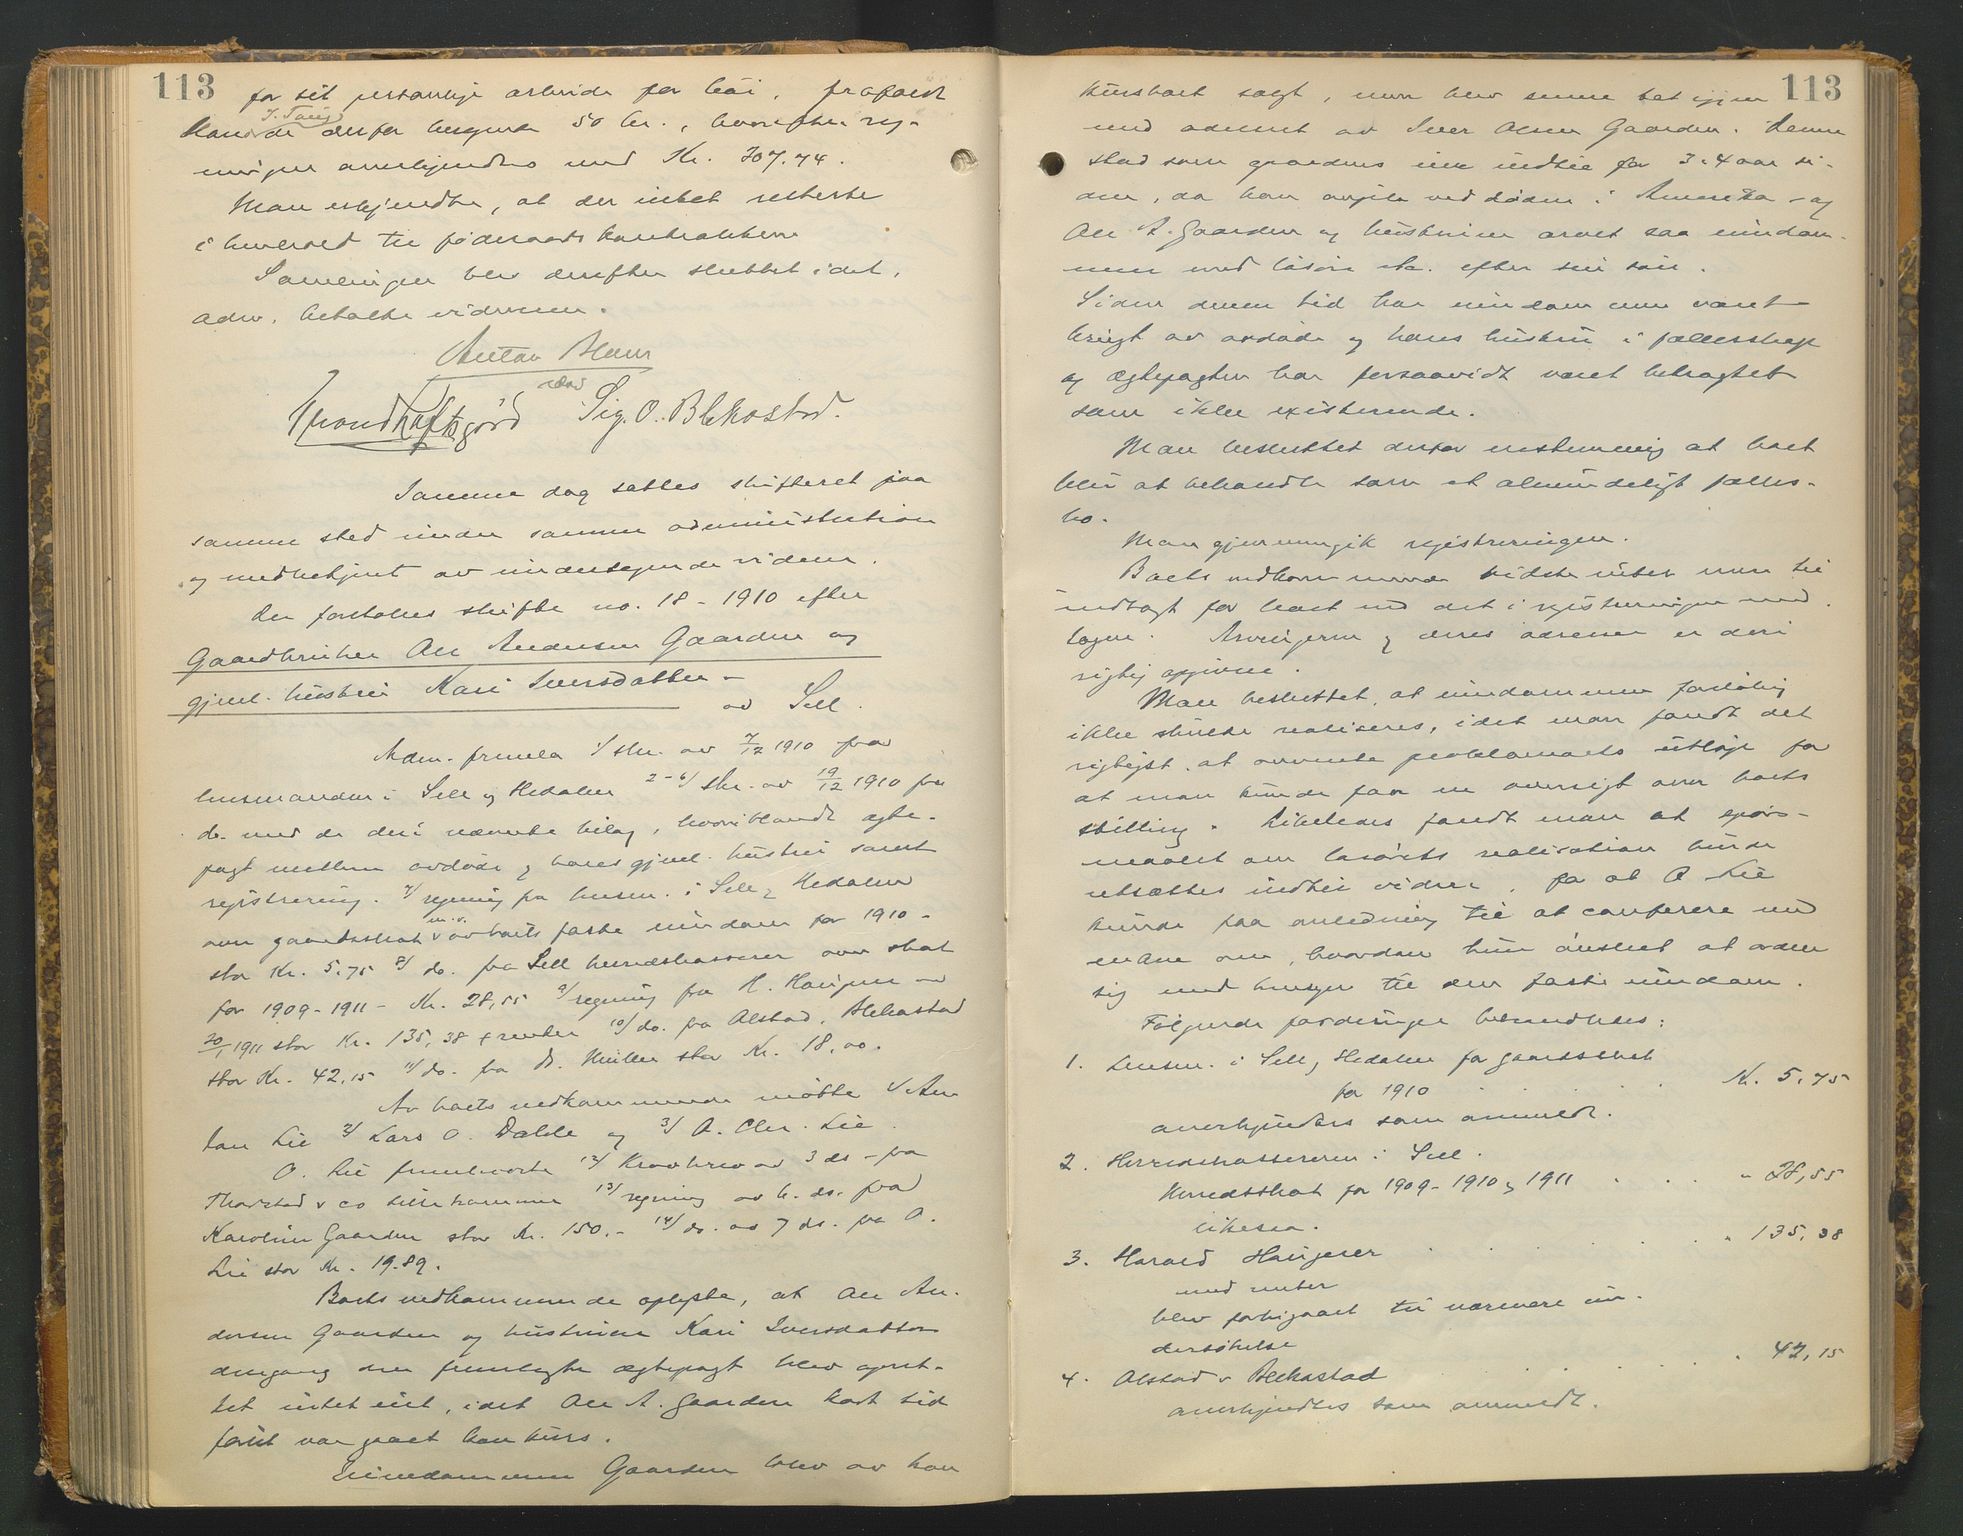 113
for sit personlige arbeide for boi, forøvrig
J. Tang
kande derfor beregnede 50 kr., hvorefter reg-
ningen anerkjendtes med Kr. 307.74.
Man erkjendte, at der intet resterte
i henhold til føderaadskontrakten
Samlingen blev derefter sluttet idet,
adm. betalte vidnerne.
Anton Blom
Sig. O. Blekastad.
Samme dag sattes skifteret paa
samme sted under samme administration
og medbetjent av undertegnede vidner.
Der foretoges skifte no. 18 - 1910 efter
Gaardbruker Ole Andersen Gaarden og
gjenl. hustru Kari Iversdatter -
av Sell.
Adm. fremla 1/ skr. av 7/12 1910 fra
lensmanden i Sell og Hedalen 2-6/ skr. av 19/12 1910 fra
do. med de deri nævnte bilag, hvoriblandt egte-
pagt mellem avdøde og hans gjenl. hustru samt
registrering. 7/ regning fra lensm. i Sell og Hedalen
over gaardsskat m.v. av boets faste eiendom for 1910 -
stor Kr. 5.75 8/ do. fra Sell herredskasserer over skat
for 1909 - 1911 - Kr. 28,55 9/ regning fra H. Haugerer av
20/1 1911 stor Kr. 135,38 + renter 10/ do. fra Alstad & Blekastad
stor Kr. 42,15 11/ do. fra Dr. Müller stor Kr. 18,00.
Av boets vedkommende møtte 1/ An
ton Lie 2/ Lars O. Dahle og 3/ O. Chr. Lie.
O. Lie fremleverte 12/ Kravbrev av 3 ds - fra
Thorstad & co Lillehammer 13/ regning av 6. ds. fra
Karoline Gaarden stor Kr. 150.- 14/ do. av 7 ds. fra O.
Lie stor Kr. 19.89.
Boets vedkommende oplyste, at Ole An-
dersen Gaarden og hustruen Kari Iversdatter
dengang den fremlagte egtepagt blev opret-
tet intet eiet, idet Ole A. Gaarden kort tid
forut var gaaet konkurs.
Eiendommen Gaarden blev av kon
113
kursboet solgt, men blev senere tat igjen
med odelsret av Iver Olsen Gaarden. Denne
stod som gaardens eier indtil for 3 a 4 aar si-
den, da han avgik ved døden i Amerika - og
Ole A. Gaarden og hustruen arvet saa eiendom-
men med løsøre etc. efter sin søn.
Siden denne tid har eiendommen været
brugt av avdøde og hans hustru i fællesskap
og Egtepagten har forsaavidt været betragtet
som ikke existerende.
Man besluttet derfor enstemmig at boet
blir at behandle som et almindeligt fælles-
bo.
Man gjennemgik registreringen.
Boets vedkommende vidste intet mere til
indtægt for boet end det i registreringen med
tagne. Arvingerne og deres adresser er deri
rigtig opgivne.
Man besluttet, at eiendommen foreløbig
ikke skulde realiseres, idet man fandt det
rigtigst, at avvente proklamaets utløp for
at man kunde faa en oversigt over boets
stilling. Likeledes fandt man at spørs-
maalet om løsørets realisation burde
utsættes indtil videre, for at O Lie
kunde faa anledning til at conferere med
enken om, hvordan hun ønsket at ordne
sig med hensyn til den faste eiendom.
Følgende fordringer behandledes:
1. Lensm. i Sell og Hedalen for gaardsskat
for 1910 . . . Kr. 5,75
anerkjendtes som anmeldt.
2. Herredskassereren i Sell.
Herredsskat for 1909 - 1910 og 1911 . . . " 28,55
likesaa.
3. Harald Haugerer . . . . . . " 135,38
med renter
blev forbigaaet til nærmere un-
dersøkelse
4. Alstad & Blekastad . . . . . " 42,15
anerkjendtes som anmeldt.